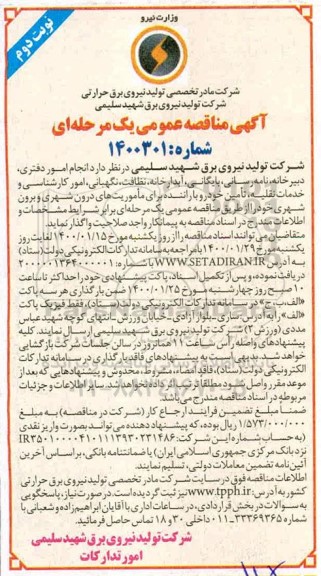 وزارت نیرو
نوبت دوم
شرکت مادر تخصصی تولید نیروی برق حرارتی
شرکت تولید نیروی برق شهید سلیمی
آگهی مناقصه عمومی یک مرحله‌ای
شماره: ۱۴۰۰۳۰۱
شرکت تولید نیروی برق شهید سلیمی در نظر دارد انجام امور دفتری،
دبیرخانه، نامه‌رسانی، بایگانی، آبدارخانه، نظافت، نگهبانی، امور کارشناسی و
خدمات نقلیه، تأمین خودرو با راننده برای مأموریت‌های درون شهری و برون
شهری خود را از طریق مناقصه عمومی یک مرحله‌ای برابر شرایط مشخصات و
اطلاعات مندرج در اسناد مناقصه به پیمانکار واجد صلاحیت واگذار نماید.
متقاضیان می‌توانند اسناد مناقصه را از روز یکشنبه مورخ ۱۴۰۰/۰۱/۱۵ لغایت روز
یکشنبه مورخ ۱۴۰۰/۰۱/۲۹ با مراجعه به سامانه تدارکات الکترونیکی دولت (ستاد)
به آدرس WWW.SETADIRAN.IR با شماره:
دریافت نموده و پس از تکمیل اسناد، پاکت پیشنهادی خود را حداکثر تا ساعت
۱۰ صبح روز چهارشنبه مورخ ۱۴۰۰/۰۱/۲۵ ضمن بارگذاری هر سه پاکت
«الف، ب، ج» در سامانه تدارکات الکترونیکی دولت (ستاد)، فقط فیزیک پاکت
«الف» را به آدرس: ساری، بلوار آزادی، خیابان ورزش، انتهای کوچه شهید عباس
مددی (ورزش ۲) شرکت تولید نیروی برق شهید سلیمی ارسال نمایند. کلیه
پیشنهادهای واصله رأس ساعت ۱۱ همان روز در سالن جلسات شرکت بازگشایی
خواهد شد. بدیهی است به پیشنهادهای فاقد بارگذاری در سامانه تدارکات
الکترونیکی دولت (ستاد)، فاقد امضاء، مشروط، مخدوش و پیشنهادهایی که بعد از
موعد مقرر واصل شود مطلقا ترتیب اثر داده نخواهد شد. سایر اطلاعات و جزئیات
مربوطه در اسناد مناقصه مندرج می‌باشد.
ضمنا مبلغ تضمین فرایند ارجاع کار (شرکت در مناقصه) به مبلغ
۱/۵۷۳/۰۰۰/۰۰۰ ریال بوده، که پیشنهاد دهنده می‌تواند بصورت واریز نقدی
(به حساب شماره این شرکت:
نزد بانک مرکزی جمهوری اسلامی ایران) یا ضمانتنامه بانکی، بر اساس آخرین
آئین‌نامه تضمین معاملات دولتی، تسلیم نمایند.
اطلاعات مناقصه فوق در سایت شرکت مادر تخصصی تولید نیروی برق حرارتی
کشور به آدرس: www.tpph.ir نیز ثبت گردیده است. در صورت نیاز، پاسخگویی
به سوالات در بخش قراردادی، در ساعات اداری با آقایان ابراهیم‌زاده و شعبانی با
شماره ۳۳۳۶۹۳۶۵-۰۱۱ داخلی ۳۰ و ۱۸ تماس حاصل فرمائید.
شرکت تولید نیروی برق شهید سلیمی
امور تدارکات